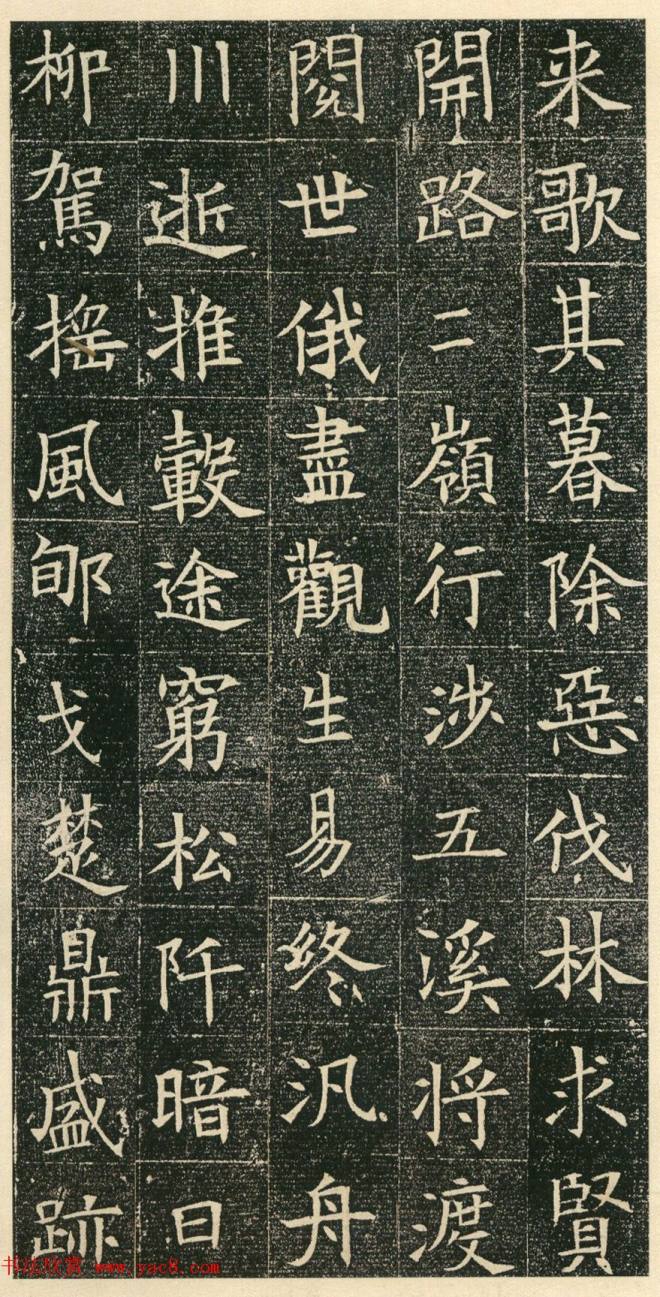 来歌其暮除惡伐林求賢
開路二嶺行涉五溪將渡
閱世俄盡觀生易終汎舟
川逝推轂途窮松阡暗日
柳駕搖風郇戈楚鼎盛跡
书法欣赏 www.yac8.com